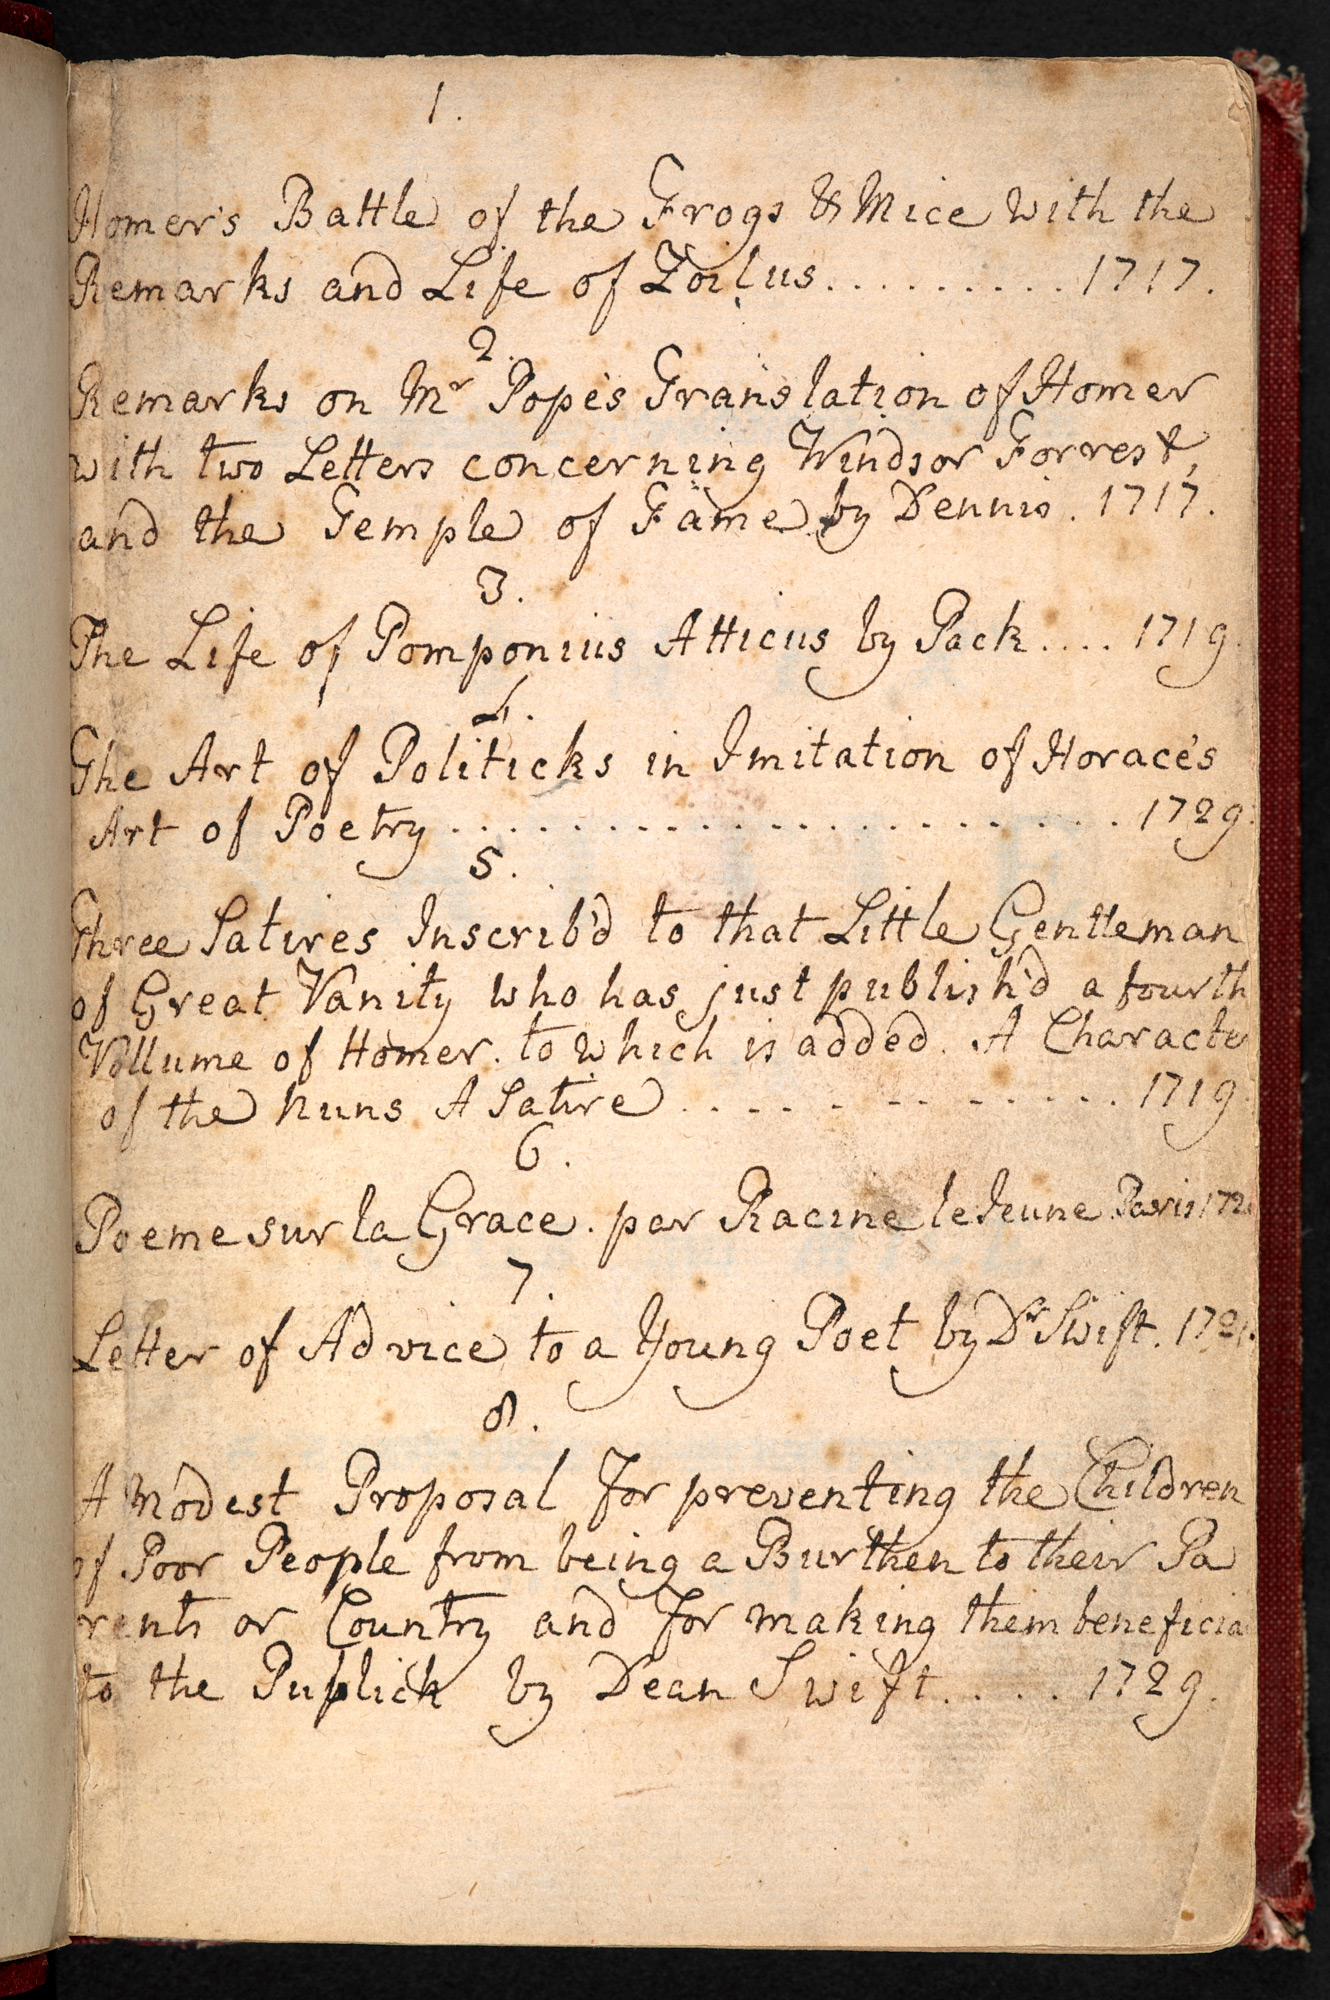 1.
Homer's Battle of the Frogs & Mice with the
Remarks and Life of Zoilus.......... 1717.
2.
Remarks on Mr Pope's Translation of Homer
with two Letters concerning Windsor Forrest,
and the Temple of Fame by Dennis. 1717.
3.
The Life of Pomponius Atticus by Pack.... 1719.
4.
The Art of Politicks in Imitation of Horace's
Art of Poetry...................... 1729.
5.
Three Satires Inscrib'd to that Little Gentleman
of Great Vanity who has just publish'd a fourth
Vollume of Homer. to which is added. A Characte
of the Nuns A Satire.............. 1719.
6.
Poeme sur la Grace. par Racine le Jeune Paris 172
7.
Letter of Advice to a Young Poet by Dr Swift. 1721.
8.
A Modest Proposal For preventing the Children
of Poor People from being a Burthen to their Pa
rents or Country and For making them beneficia
to the Publick by Dean Swift.... 1729.